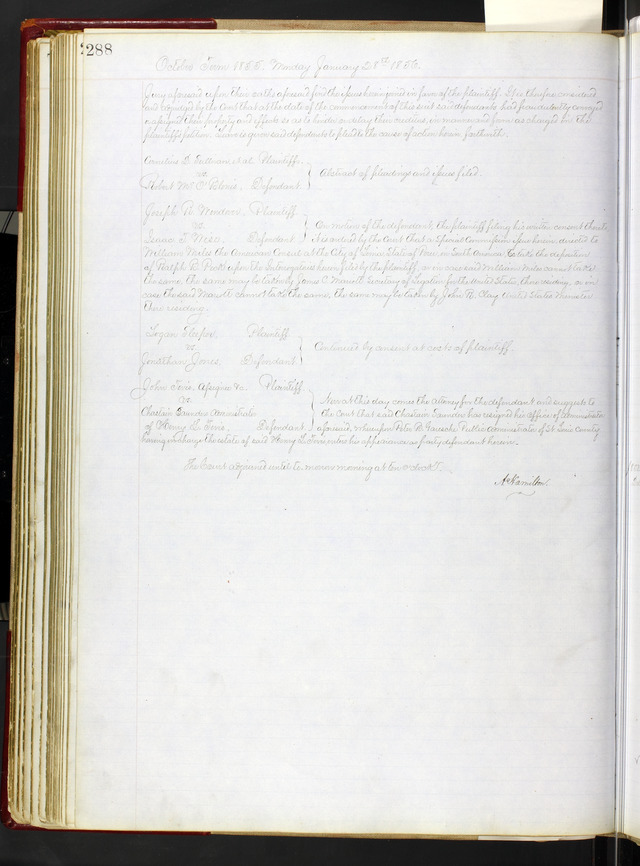 288
October Term 1855. Monday January 28th 1856.
Jury aforesaid upon their oaths aforesaid find the issues herein joined in favor of the plaintiff. It is therefore considered
and adjudged by the Court that at the date of the commencement of this suit said defendants had fraudulently conveyed
assigned their property and effects so as to hinder or delay their creditors, in manner and form as charged in the
plaintiff's petition. Leave is given said defendants to plead to the cause of action herein forthwith.
et al. Plaintiffs.
vs.
Robert M. O'Blenis. Defendant.
Abstract of pleadings and issues filed.
Joseph Plaintiff
vs.
Isaac T. Wise. Defendant.
On motion of the defendant, the plaintiff filing his written consent thereto
it is ordered by the Court that a Special Commission issue herein directed to
William Miles the American Consul at the City of State of in South America to take the deposition
of Ralph upon the Interrogatories herein filed by the plaintiff, or in case said William Miles cannot take
the same, the same may be taken by James C. Secretary of Legation for the United States, there residing, or in
case the said cannot take the same, the same may be taken by John R. Clay United States Minister
there residing.
Logan Plaintiff
vs.
Jonathan Jones. Defendant
Continued by consent at costs of plaintiff.
John Assignee &c. Plaintiff
vs.
Chastain Saunders Administrator
of Henry L. Defendant
Now at this day comes the attorney for the defendant and suggests to
the Court that said Chastain Saunders has resigned his office of administrator
aforesaid, whereupon Peter Public Administrator of St. Louis County
having in charge the estate of said Henry L. enters his appearance as party defendant herein.
The Court adjourned until to-morrow morning at ten o'clock.
A. Hamilton.